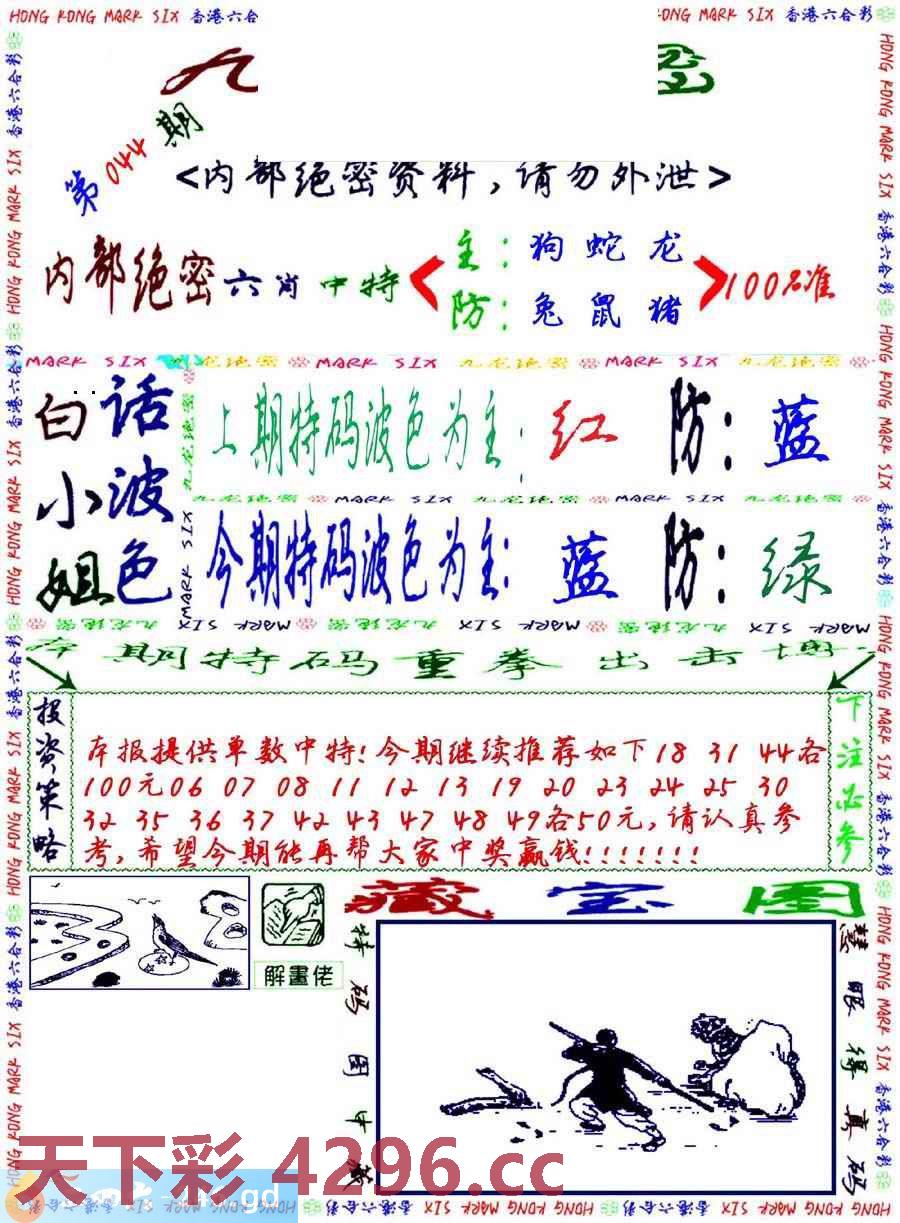 HONG KONG MARK SIX 香港六合
ONG KONG MARK SIX 香港六合彩
九
第044期
<内部绝密资料,请勿外泄>
内部绝密六肖中特
主:狗 蛇 龙
防:兔 鼠 猪
100%准
MARK SIX 九龙绝密 MARK SIX 九龙绝密 MARK SIX 九龙绝密
白话
小波
姐色
上期特码波色为主:红 防:蓝
九龙绝密 MARK SIX 九龙绝密 MARK SIX 九龙绝密
今期特码波色为主:蓝 防:绿
本期特码重拳出击博
投资策略
本报提供单数中特!今期继续推荐如下18 31 44各
100元06 07 08 11 12 13 19 20 23 24 25 30
32 35 36 37 42 43 47 48 49各50元,请认真参
考,希望今期能再帮大家中奖赢钱!!!!!!!
下注必参
解畫佬
藏宝图
特码图中藏
慧眼得真码
天下彩4296.cc
gd